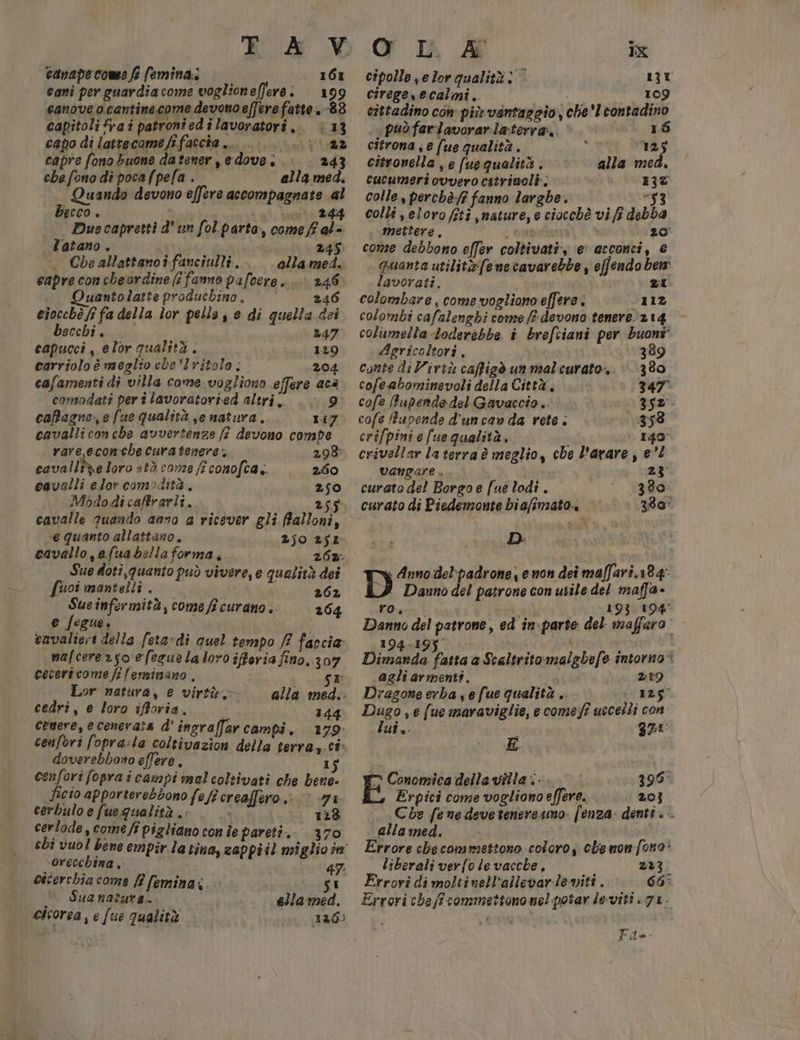 TAVOLA ix
canape come si semina. 161
cani per guardia come voglion essere. 199
canove o cantine come devono esser fatte. 88
capitoli fra i patroni ed i lavoratori. 13
capo di latte come si faccia. 22
capre sono buone da tener, e dove. 243
che sono di poca spesa. alla med.
Quando devono essere accompagnate al
becco. 244
Due capretti d'un sol parto, come si al-
latano. 245
Che allattano i fanciulli. alla med.
capre con che ordine si fanno pascere. 246
Quanto latte produchino. 246
ciocchè si fa della lor pelle, e di quella dei
becchi. 247
capucci, e lor qualità. 129
carriolo è meglio che'l ritolo; 204
casamenti di villa come vogliono essere acc
comodati per i lavoratori ed altri. 9
castagne, e sue qualità, e natura. 117
cavalli con che avvertenze si devono compe
rare, e con che cura tenere. 298
cavalli, e loro età come si conosca. 260
cavalli e lor comodità. 250
Modo di castrarli. 255
cavalle quando anno a ricever gli stalloni,
e quanto allattano. 250 251
cavallo, e sua bella forma. 262
Sue doti, quanto può vivere, e qualità dei
suoi mantelli. 262
Sue infermità, come si curano. 264
e segue.
cavalieri della seta di quel tempo si faccia
nascere 250 e segue la loro istoria fino. 307
ceceri come si seminano. 51
Lor natura, e virtù. alla med.
cedri, e loro istoria. 144
cenere, e cenerata d' ingrassar campi. 179
censori sopra la coltivazion della terra, ci
doverebbono essere. 15
censori sopra i campi mal coltivati che bene-
ficio apporterebbono se si creassero. 71
cerbulo e sue qualità. 128
cerlode, come si pigliano con le pareti. 370
chi vuol bene empir la tina, zappi il miglio in
orecchina. 47
cicerchia come si semina; 51
Sua natura. alla med.
cicorea, e sue qualità 126
cipolle, e lor qualità: 131
cirege, e calmi. 109
cittadino con più vantaggio, che'l contadino
può far lavorar la terra. 16
citrona, e sue qualità. 125
citronella, e sue qualità. alla med.
cucumeri ovvero citriuoli. 132
colle, perchè si fanno larghe. 53
colli, e loro siti, nature, e ciocchè vi si debba
mettere. 20
come debbono esser coltivati, e acconci, e
quanta utilità se ne cavarebbe, essendo ben
lavorati. 21
colombare, come vogliono essere. 112
colombi casalenghi come si devono tenere. 214
columella loderebbe i bresciani per buoni
Agricoltori. 389
conte di Virtù castigò un mal curato. 380
cose abominevoli della Città. 347
cose stupende del Gavaccio. 352
cose stupende d'un cav da rete. 358
crispini e sue qualità. 140
crivellar la terra è meglio, che l'arare, e'l
vangare. 23
curato del Borgo e sue lodi. 380
curato di Piedemonte biasimato. 380
D
Danno del padrone, e non dei massari. 184
Danno del patrone con utile del massa-
ro. 193 194
Danno del patrone, ed in parte del massaro
194 195
Dimanda fatta a Scaltrito malghese intorno
agli armenti. 219
Dragone erba, e sue qualità. 125
Dugo, e sue maraviglie, e come si uccelli con
lui. 371
E
Economica della villa. 396
Erpici come vogliono essere. 203
Che se ne deve tenere uno senza denti.
alla med.
Errore che commettono coloro, che non sono
liberali verso le vacche. 223
Errori di molti nell'allevar le viti. 66
Errori che si commettono nel potar le viti. 71
Fa-